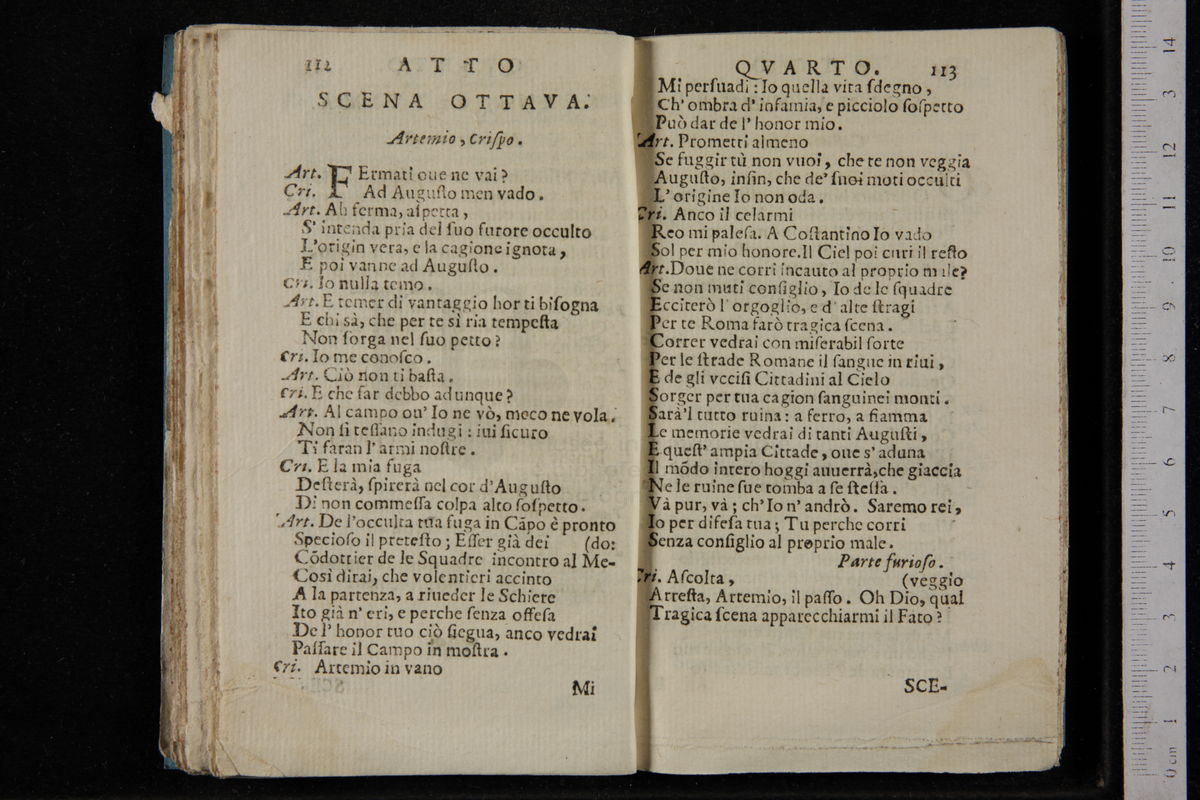 112 ATTO
SCENA OTTAVA.
Artemio, Criſpo.
Art. FErmati oue ne vai?
Cri. Ad Auguſto men vado.
Art. Ah ferma, aſpetta,
S' intenda pria del ſuo furore occulto
L'origin vera, e la cagione ignota,
E poi vanne ad Auguſto.
Cri. Io nulla temo.
Art. E temer di vantaggio hor ti biſogna
E chi sà, che per te sì ria tempeſta
Non ſorga nel ſuo petto?
Cri. Io me conoſco.
Art. Ciò non ti baſta.
Cri. E che far debbo adunque?
Art. Al campo ou' Io ne vò, meco ne vola.
Non ſi teſſano indugi : iui ſicuro
Ti faran l' armi noſtre.
Cri. E la mia fuga
Deſterà, ſpirerà nel cor d'Auguſto
Di non commeſſa colpa alto ſoſpetto.
Art. De l'occulta tua fuga in Cãpo è pronto
Specioſo il preteſto; Eſſer già dei (do:
Cõdottier de le Squadre incontro al Me-
Così dirai, che volentieri accinto
A la partenza, a riueder le Schiere
Ito già n' eri, e perche ſenza offeſa
De l' honor tuo ciò ſiegua, anco vedrai
Paſſare il Campo in moſtra.
Cri. Artemio in vano
Mi
QVARTO. 113
Mi perſuadi : Io quella vita ſdegno,
Ch' ombra d' infamia, e picciolo ſoſpetto
Può dar de l' honor mio.
Art. Prometti almeno
Se fuggir tù non vuoi, che te non veggia
Auguſto, inſin, che de' ſuoi moti occulti
L' origine Io non oda.
Cri. Anco il celarmi
Reo mi paleſa. A Coſtantino Io vado
Sol per mio honore. Il Ciel poi curi il reſto
Art. Doue ne corri incauto al proprio male?
Se non muti conſiglio, Io de le ſquadre
Ecciterò l' orgoglio, e d' alte ſtragi
Per te Roma farò tragica ſcena.
Correr vedrai con miſerabil ſorte
Per le ſtrade Romane il ſangue in riui,
E de gli vcciſi Cittadini al Cielo
Sorger per tua cagion ſanguinei monti.
Sarà'l tutto ruina : a ferro, a fiamma
Le memorie vedrai di tanti Auguſti,
E queſt' ampia Cittade, oue s' aduna
Il mõdo intero hoggi auuerrà, che giaccia
Ne le ruine ſue tomba a ſe ſteſſa.
Và pur, và ; ch' Io n' andrò. Saremo rei,
Io per difeſa tua ; Tu perche corri
Senza conſiglio al proprio male.
Parte furioſo.
Cri. Aſcolta, (veggio
Arreſta, Artemio, il paſſo. Oh Dio, qual
Tragica ſcena apparecchiarmi il Fato?
SCE-
0 cm 1 2 3 4 5 6 7 8 9 10 11 12 13 14